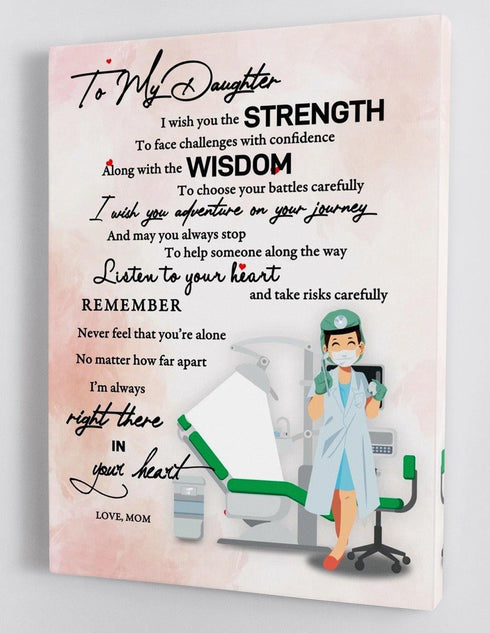 To My Daughter
I wish you the STRENGTH
To face challenges with confidence
Along with the WISDOM
To choose your battles carefully
I wish you adventure on your journey
And may you always stop
To help someone along the way
Listen to your heart
and take risks carefully
REMEMBER
Never feel that you're alone
No matter how far apart
I'm always
right there
IN
your heart
LOVE, MOM